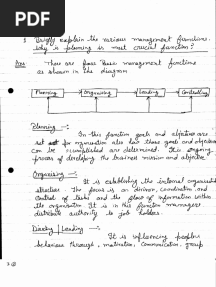 PDF
1 Briefly explain the various management functions.
Why is planning is most crucial function?
Ans There are four basic management functions
as shown in the diagram
Planning Organising Leading Controlling
Planning —:
In this function goals and objectives are
set for organisation also how these goals and objectives
can be accomplished are determined. It is ongoing
process of developing the business mission and objective
Organising —:
It is establishing the internal organisational
structure. The focus is on division, coordination and
control of tasks and the flow of information within
the organisation. It is in this function managers
distribute authority to job holders.
Directing / Leading —:
It is influencing peoples
behaviour through, motivation, communication, group